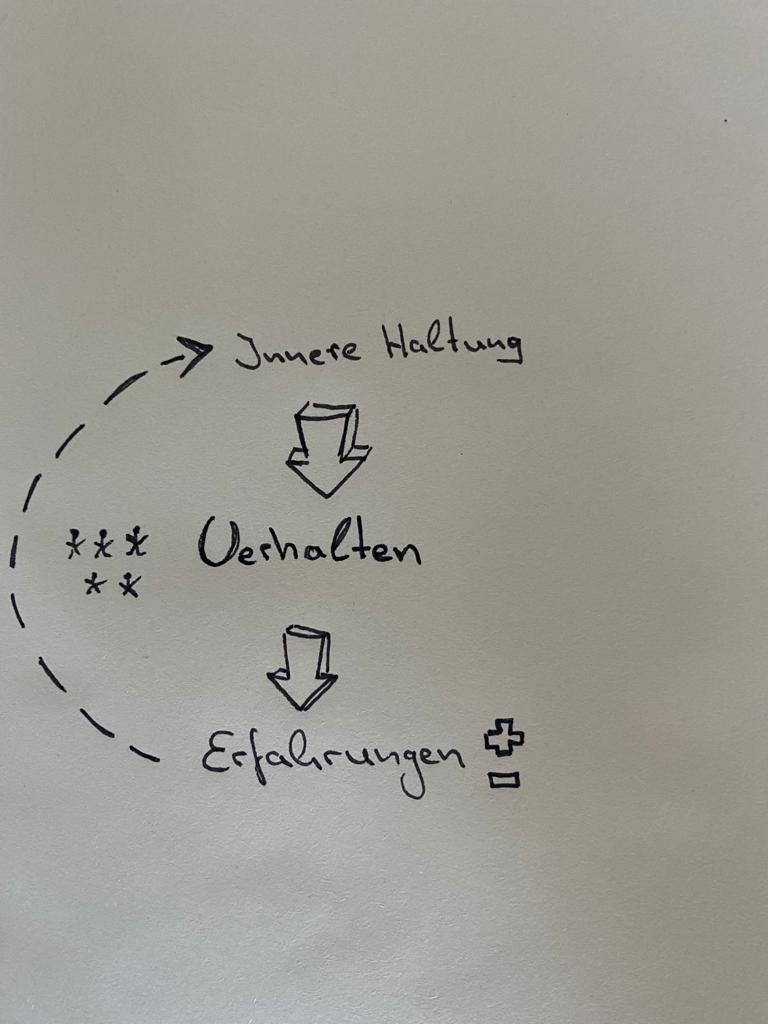 Innere Haltung
*** Verhalten
**
Erfahrungen +
-